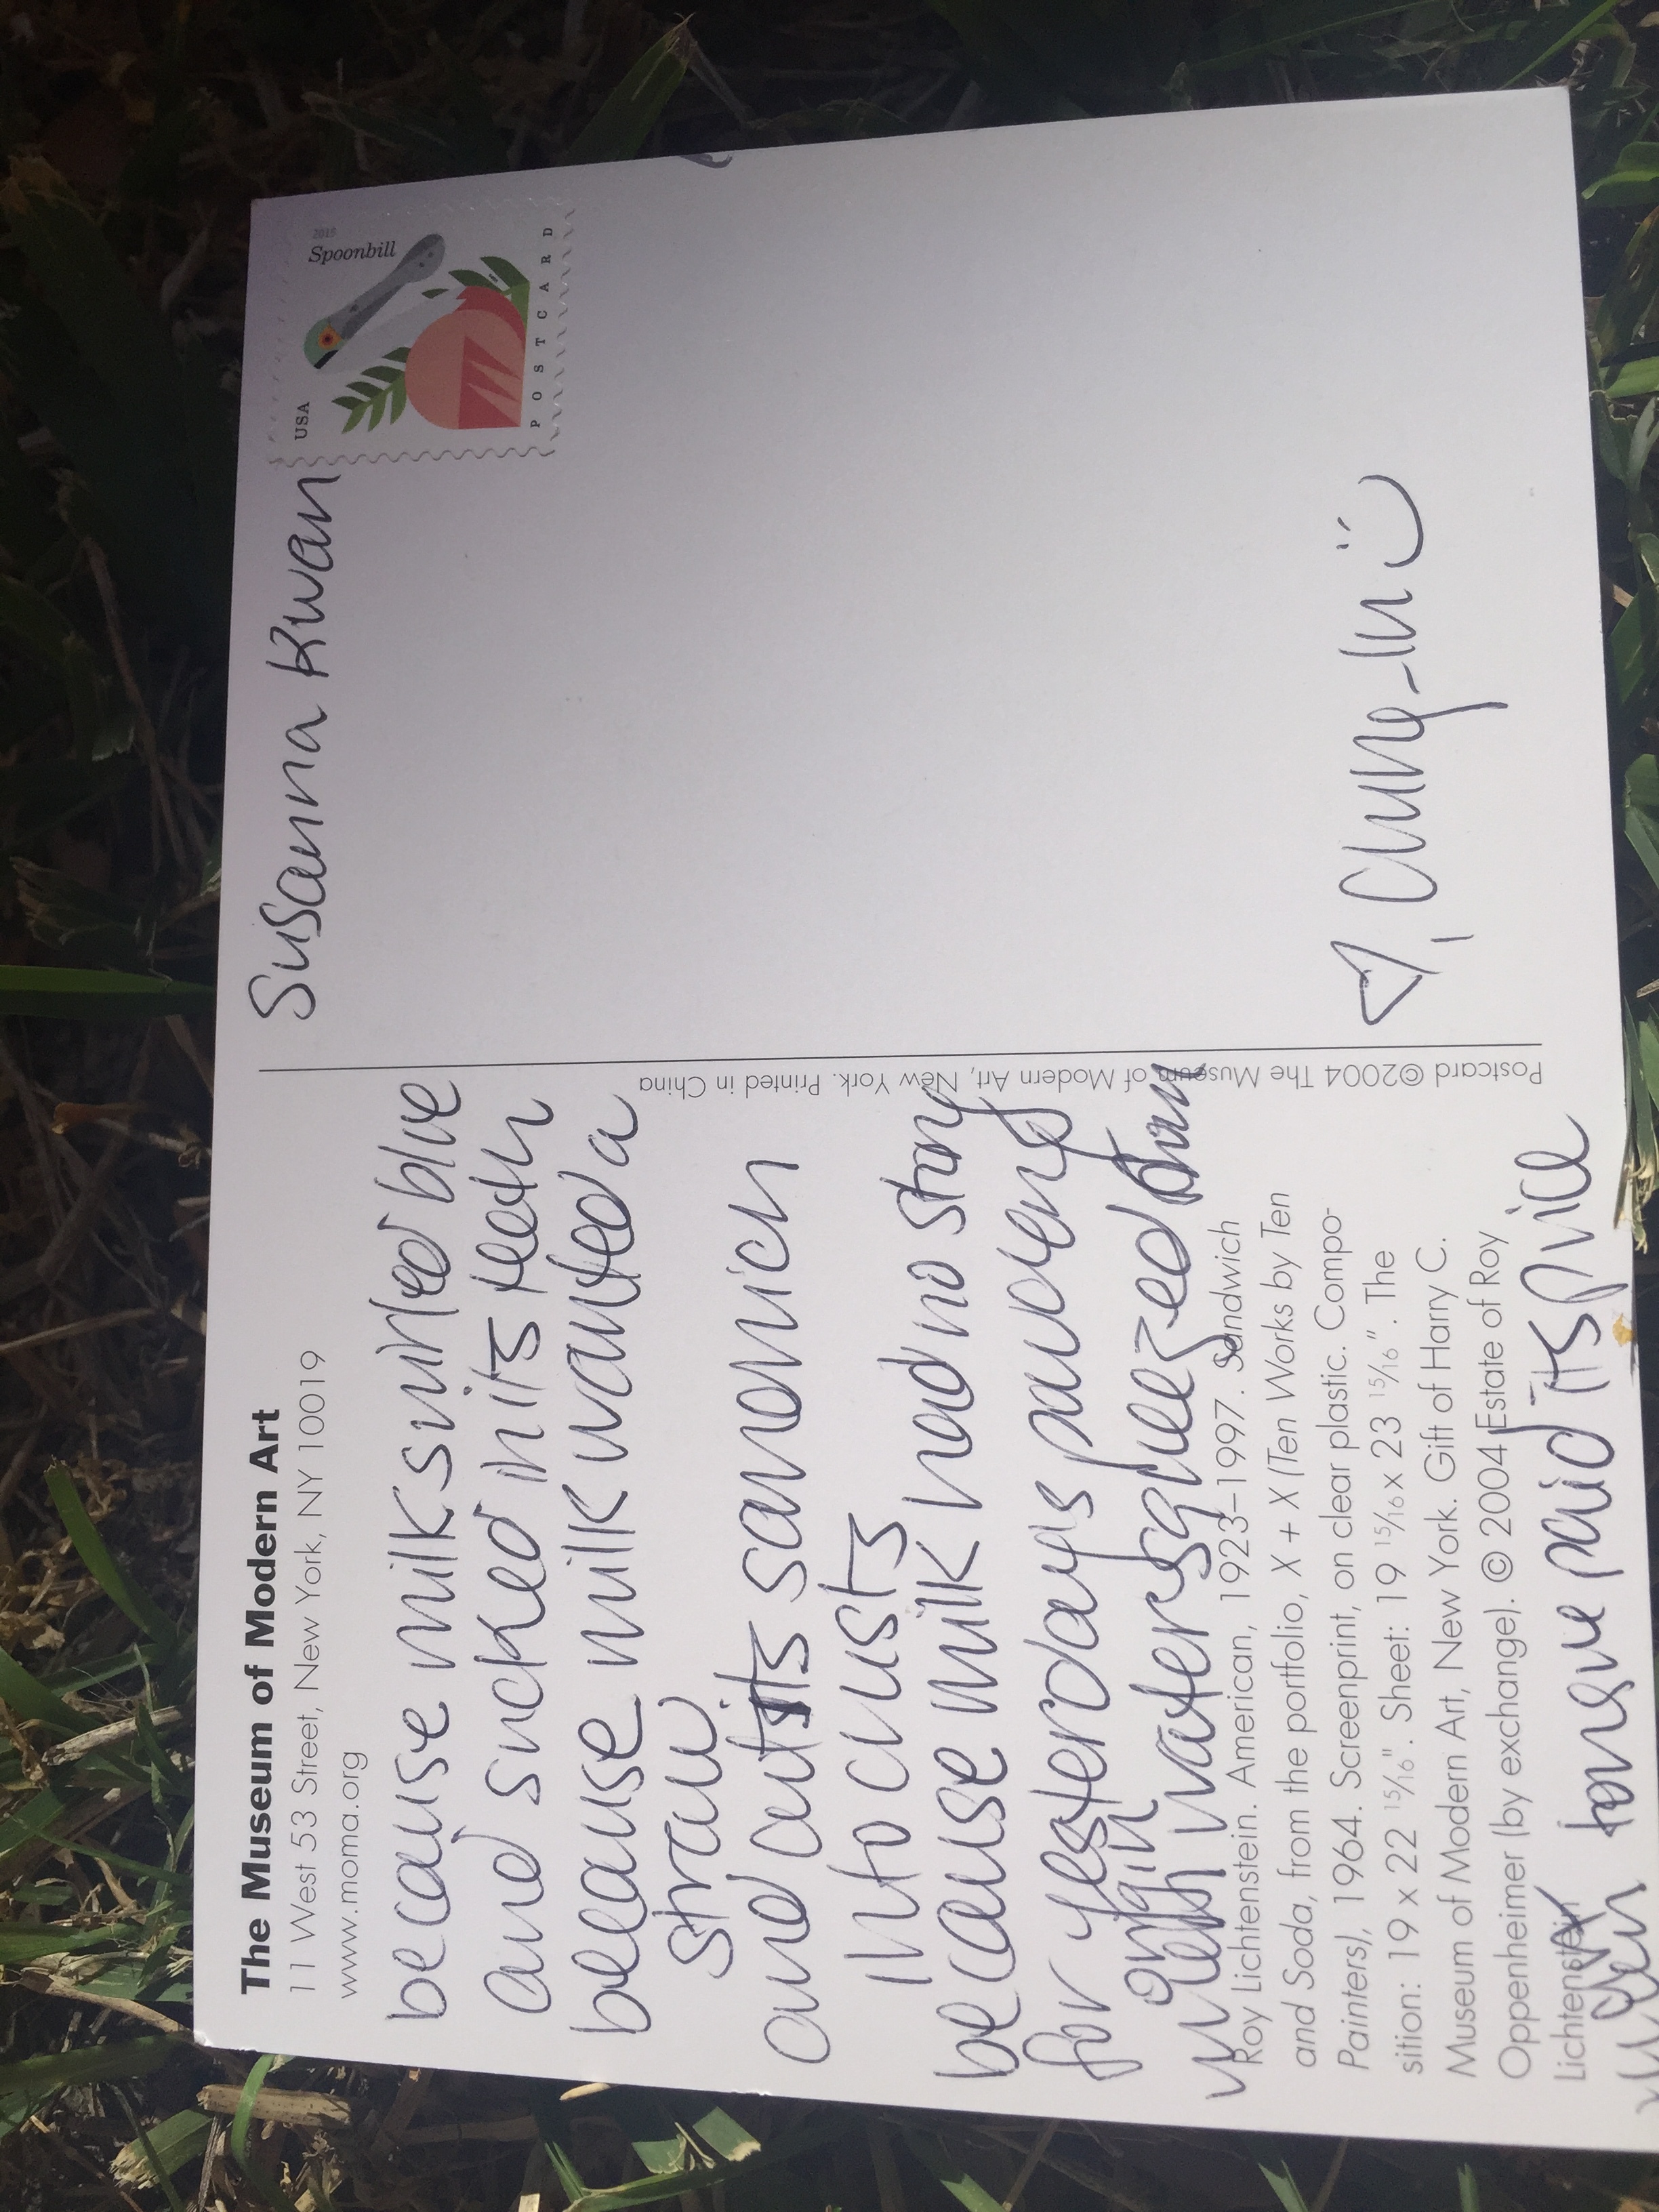 The Museum of Modern Art
11 West 53 Street, New York, NY 10019
www.moma.org
because milk smiled blue
and sucked in its teeth
because milk wanted a
straw
and cut its sandwich
into crusts
because milk had no story
for yesterdays pavement
origin
water squeezed
Roy Lichtenstein. American, 1923–1997. Sandwich
and Soda, from the portfolio, X + X (Ten Works by Ten
Painters), 1964. Screenprint, on clear plastic. Compo-
sition: 19 x 22 15/16". Sheet: 19 15/16 x 23 15/16". The
Museum of Modern Art, New York. Gift of Harry C.
Oppenheimer (by exchange). © 2004 Estate of Roy
Lichtenstein
tongue paid its price
Postcard ©2004 The Museum of Modern Art, New York. Printed in China
Susanna Kwan
USA
2015
Spoonbill
POSTCARD